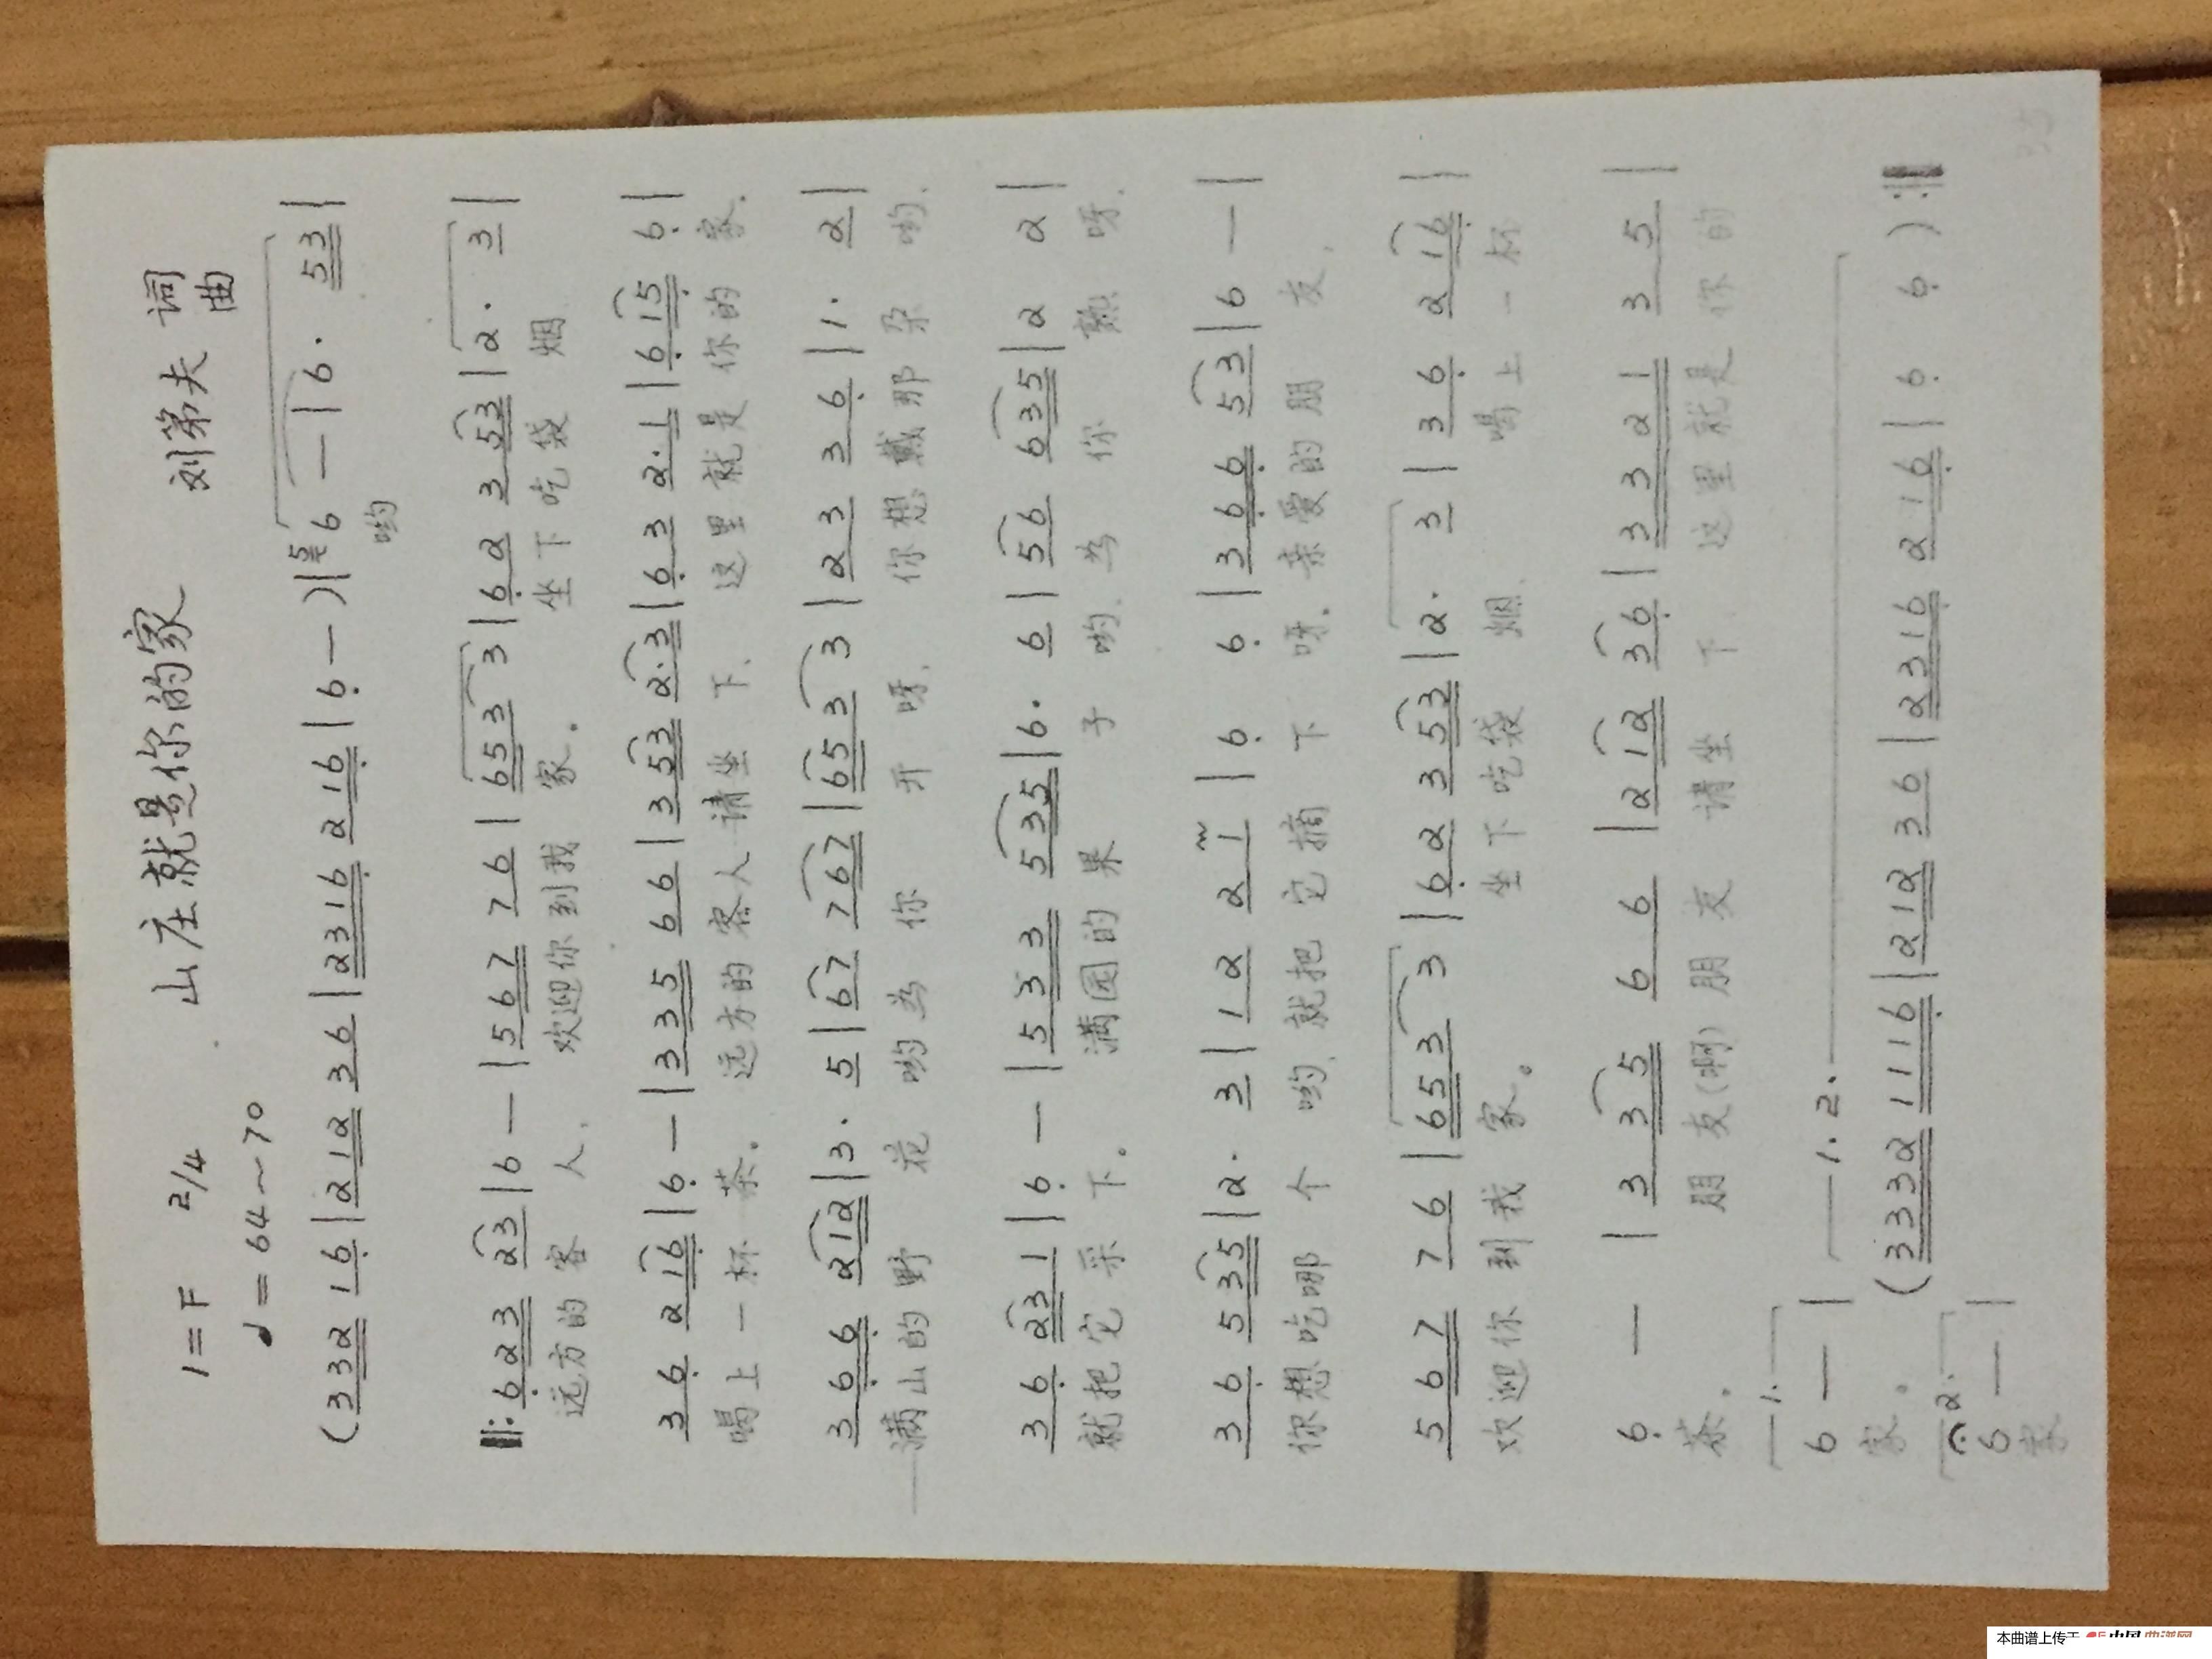 山庄就是你的家
1=F 2/4 刘第夫 词
曲
♩=64~70
(332 16 | 212 36 | 2316 216 | 6 — ) | 56 6 — | 6· 53 |
哟
‖: 6 2 3 23 | 6 — | 5 6 7 7 6 | 653 3 | 6 2 3 53 | 2· 3 |
远方的客人, 欢迎你到我家。 坐下吃袋烟
3 6 2 16 | 6 — | 3 3 5 6 6 | 3 53 2·3 | 6 3 2·1 | 6 15 6 |
喝上一杯茶。 远方的客人请坐下, 这里就是你的家.
3 6 6 212 | 3· 5 | 67 767 | 653 3 | 2 3 3 6 | 1· 2 |
满山的野花哟为你开呀, 你想戴那朵哟,
3 6 231 | 6 — | 5 3 3 535 | 6· 6 | 56 635 | 2 2
就把它采下。 满园的果子哟, 为你熟呀,
3 6 5 35 | 2· 3 | 1 2 2 1 | 6 6 | 3 6 6 53 | 6 — |
你想吃哪个哟, 就把它摘下呀. 亲爱的朋友,
5 6 7 7 6 | 653 3 | 6 2 3 53 | 2· 3 | 3 6 2 16 |
欢迎你到我家。 坐下吃袋烟, 喝上一杯
6 — | 3 35 6 6 | 2 12 36 | 3 3 2 1 3 5 |
茶。 朋友(啊)朋友请坐下 这里就是你的
1. 1.2.
6 — | (3332 1116 | 212 36 | 2316 216 | 6 6 ) :‖
家。
2.
6 — |
家
本曲谱上传于 中国曲谱网